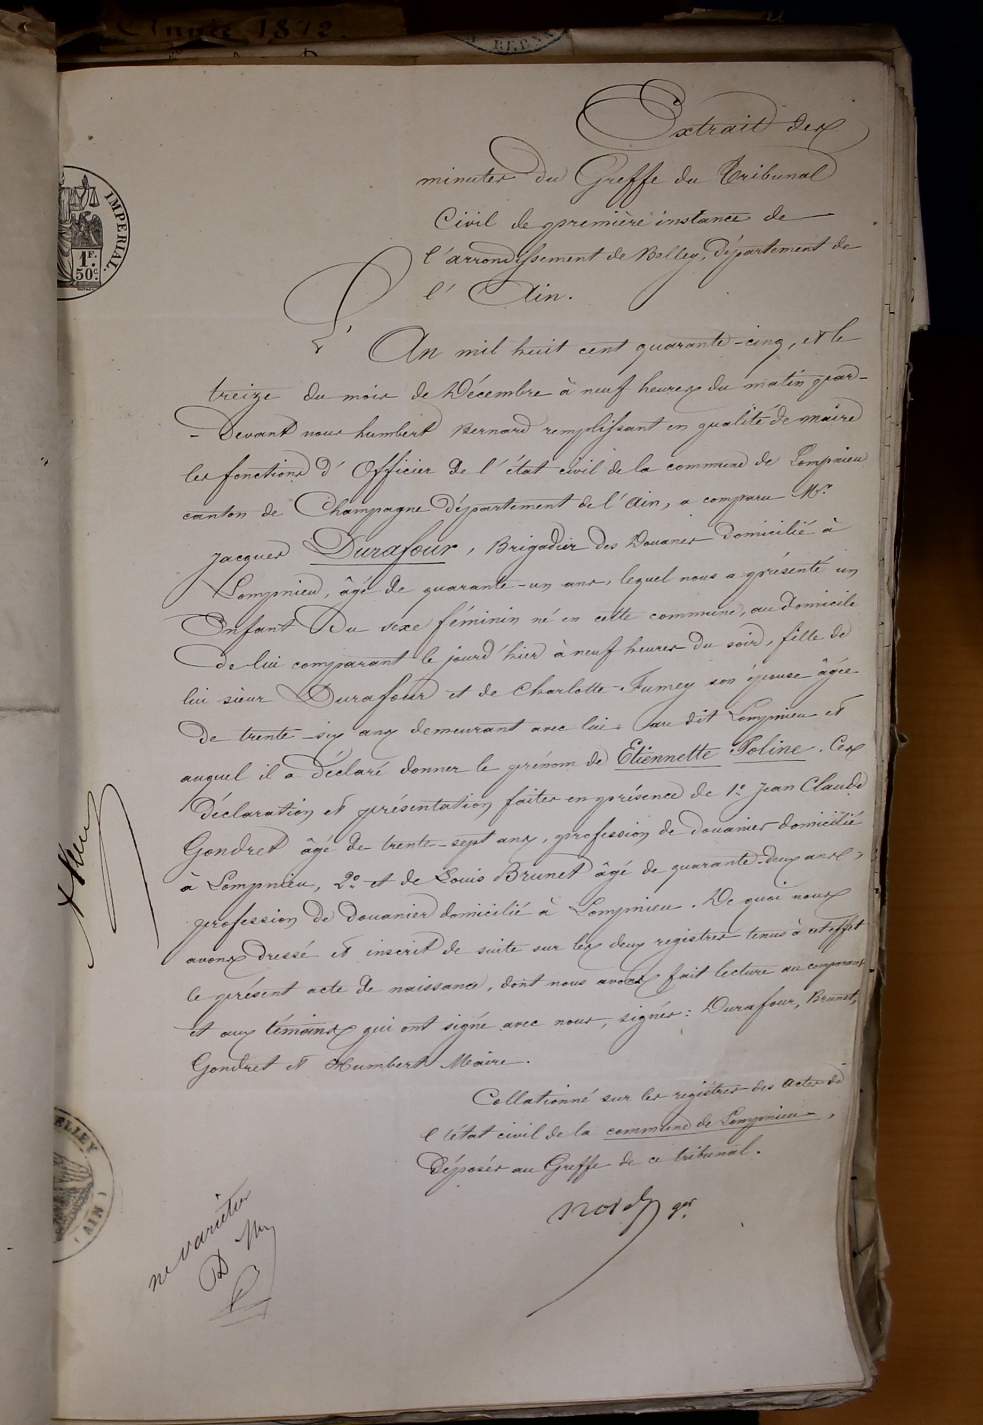 Année 1872
IMPERIAL.
1F.
50c.
Extrait des
minutes du Greffe du Tribunal
Civil de première instance de
l'arrondissement de Belley, département de
l'Ain.
L'An mil huit cent quarante-cinq, et le
treize du mois de Décembre à neuf heures du matin par-
-Devant nous humbert Bernard remplissant en qualité de maire
les fonctions d'Officier de l'état civil de la commune de Lompnieu
canton de Champagne département de l'Ain, a comparu Mr.
Jacques Durafour, Brigadier des Douanes domicilié à
Lompnieu, âgé de quarante-un ans, lequel nous a présenté un
Enfant Du sexe féminin né en cette commune, au domicile
De lui comparant le jourd'hier à neuf heures du soir, fille de
lui sieur Durafour et de Charlotte Fumey son épouse âgée
De trente-six ans demeurant avec lui au dit Lompnieu et
auquel il a déclaré donner le prénom de Etiennette Poline. Ces
Déclaration et présentation faites en présence de 1o. Jean Claude
Gondret âgé de trente-sept ans, profession de douanier domicilié
à Lompnieu, 2o. et de Louis Brunet âgé de quarante-deux ans,
profession de douanier domicilié à Lompnieu. De quoi nous
avons dressé et inscrit de suite sur les deux registres tenus à cet effet
le présent acte de naissance, dont nous avons fait lecture au comparant
et aux témoins qui ont signé avec nous, signés: Durafour, Brunet,
Gondret et Humbert Maire.
Collationné sur les registres des actes de
l'état civil de la commune de Lompnieu,
Déposés au Greffe de ce tribunal.
ne varietur
BELLEY
(AIN)